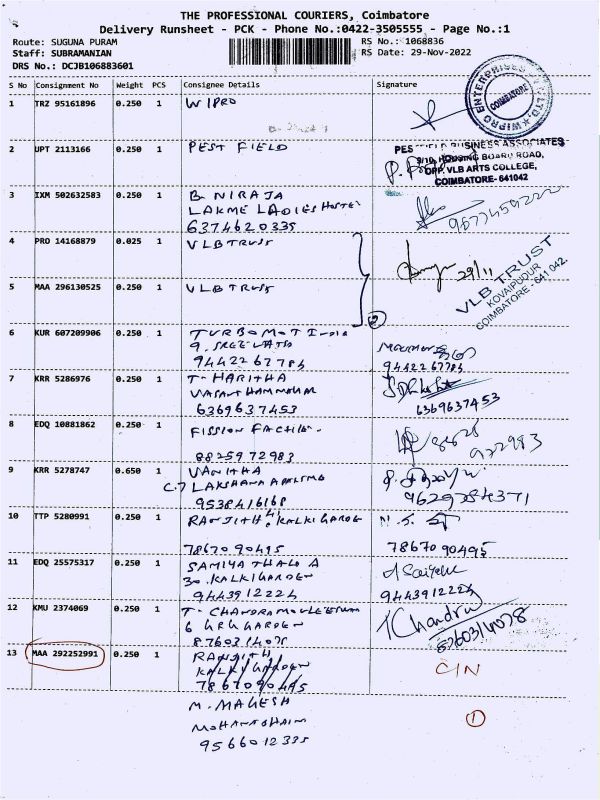 THE PROFESSIONAL COURIERS, Coimbatore
Delivery Runsheet - PCK - Phone No.:0422-3505555 - Page No.:1
Route: SUGUNA PURAM RS No.: 1068836
Staff: SUBRAMANIAN RS Date: 29-Nov-2022
DRS No.: DCJB106883601
S No Consignment No Weight PCS Consignee Details Signature
1 TRZ 95161896 0.250 1 WIPRO
WIPRO ENTERPRISES PVT. LTD.
COIMBATORE
2 UPT 2113166 0.250 1 PEST FIELD
BUSINESS ASSOCIATES
9/10, HOUSING BOARD ROAD,
OPP. VLB ARTS COLLEGE,
COIMBATORE- 641042
3 IXM 502632583 0.250 1 B. NIRAJA
LAKME LADIES HOSTEL
6374620335
4 PRO 14168879 0.025 1 VLB TRUST
29/11
VLB TRUST
KOVAIPUDUR
COIMBATORE - 641 042.
5 MAA 296130525 0.250 1 VLB TRUST
2
6 KUR 607209906 0.250 1 TURBOMOT INDIA
9442267784
9442267784
7 KRR 5286976 0.250 1 T. HARITHA
6369637453
6369637453
8 EDQ 10881862 0.250 1 FISSION
8825972983
972983
9 KRR 5278747 0.650 1 VANITHA
C.7 LAKSHANA
9538416168
9629784371
10 TTP 5280991 0.250 1 RANJITH KALKI GARDEN
7867090495 7867090495
11 EDQ 25575317 0.250 1 SAMIYA
30. KALKI GARDEN
9443912224 9443912224
12 KMU 2374069 0.250 1 T. CHANDRAMOULEESWARAN
6 GARDEN
8760314078
T Chandru
8760314078
13 MAA 292252991 0.250 1 RANJITH
KALKI GARDEN
7867090495
C/N
M. MAGESH
9566012335
1